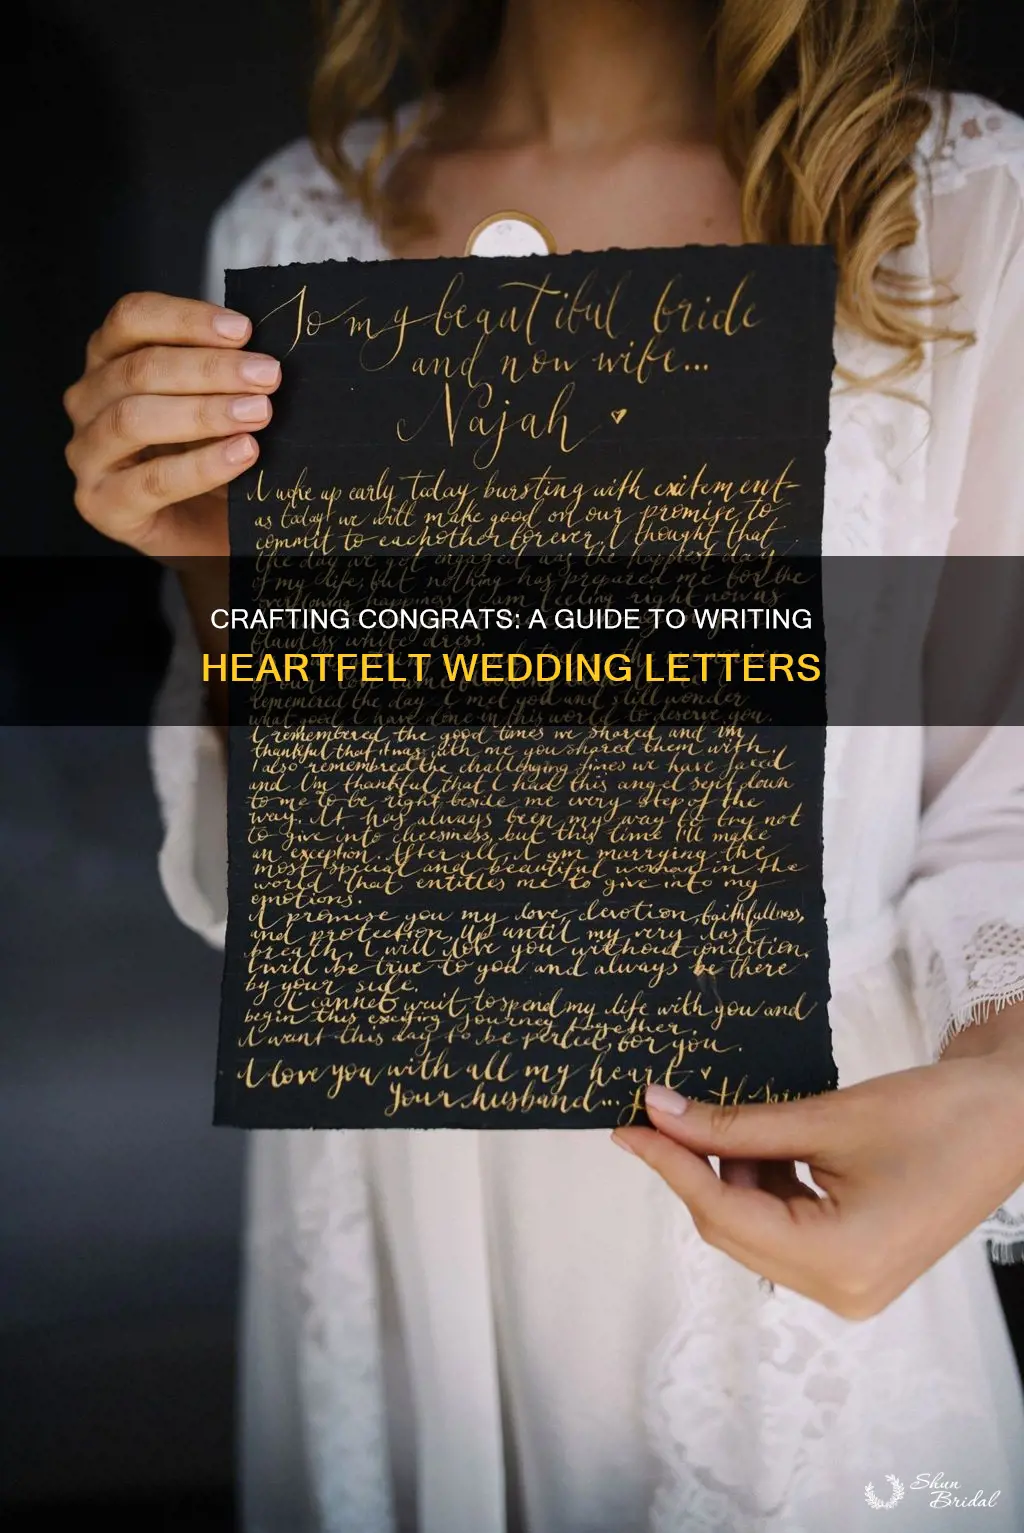 To my beautiful bride
and now wife...
Najah
I woke up early today bursting with excitement-
as today we will make good on our promise to
commit to eachother forever. I thought that
the day we got engaged was the happiest day
of my life, but nothing has prepared me for the
overflowing happiness I am feeling right now as
CRAFTING CONGRATS: A GUIDE TO WRITING
flawless white dress.
HEARTFELT WEDDING LETTERS
remembered the day I met you and still wonder
what good I have done in this world to deserve you.
I remembered the good times we shared and I'm
thankful that it was with me you shared them with.
I also remembred the challenging times we have faced
and I'm thankful that I had this angel sent down
to me to be right beside me every step of the
way. It has always been my way to try not
to give into cheesiness, but this time I'll make
an exception. After all, I am marrying the
most special and beautiful woman in the
world that entitles me to give into my
emotions.
I promise you my love, devotion, faithfullness,
and protection, up until my very last
breath. I will love you without condition.
I will be true to you and always be there
by your side.
I cannot wait to spend my life with you and
begin this exciting journey together.
I want this day to be perfect, for you.
I love you with all my heart
Your husband...
Shun
Bridal